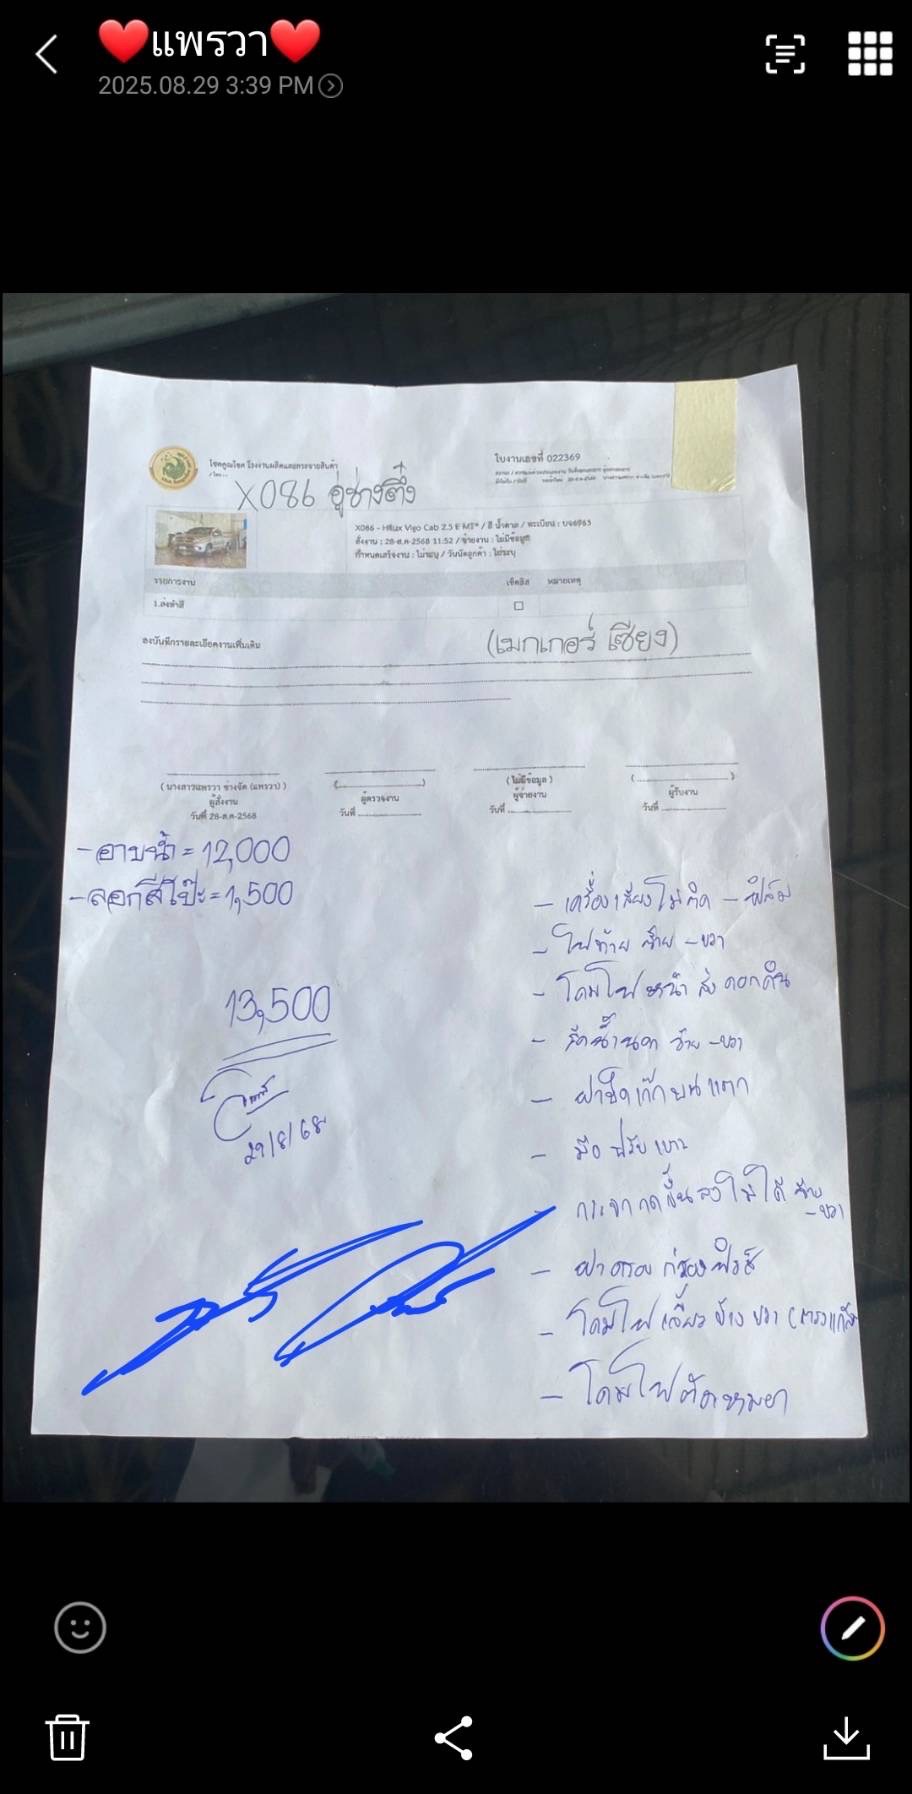 ❤️แพรวา❤️
2025.08.29 3:39 PM
โชคคูณโชค โรงงานผลิตและกระจายสินค้า
ใบงานเลขที่ 022369
X086 อู่ช่างตึ๋ง
X086 - Hilux Vigo Cab 2.5 E MT* / สี น้ำตาล / ทะเบียน :
สั่งงาน : 28-ส.ค-2568 11:52 / จ่ายงาน : ไม่มีข้อมูล
กำหนดเสร็จงาน : ไม่ระบุ / วันนัดลูกค้า : ไม่ระบุ
รายการงาน เช็คลิส หมายเหตุ
1.ส่งทำสี
ลงบันทึกรายละเอียดงานเพิ่มเติม
(เมกเกอร์ เซียง)
( นางสาวแพรวา ช่างจัด (แพรวา) ) (....................) ( ไม่มีข้อมูล ) (....................)
ผู้สั่งงาน ผู้ตรวจงาน ผู้จ่ายงาน ผู้รับงาน
วันที่ 28-ส.ค-2568 วันที่ .................... วันที่ .................... วันที่ ....................
- อาบน้ำ = 12,000
- ลอกสีโป๊ะ = 1,500
13,500
29/8/68
- เครื่องเสียงไม่ติด - ฟิล์ม
- ไฟท้าย ซ้าย - ขวา
- โคมไฟหน้า
- ซ้าย - ขวา
- แตก
- มือ ปรับเบาะ
กระจกกดขึ้นลงไม่ได้ ซ้าย - ขวา
- ฝาครอบ กล่องฟิวส์
- โคมไฟเลี้ยว ข้าง ขวา
- โคมไฟตัดหมอก